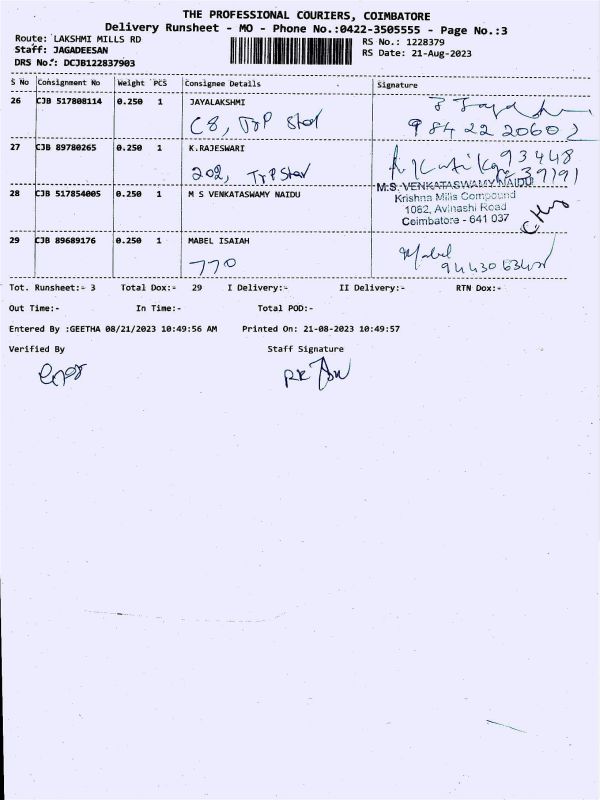 THE PROFESSIONAL COURIERS, COIMBATORE
Delivery Runsheet - MO - Phone No.:0422-3505555 - Page No.:3
Route: LAKSHMI MILLS RD
Staff: JAGADEESAN
DRS No.: DCJB122837903
RS No.: 1228379
RS Date: 21-Aug-2023
S No Consignment No Weight PCS Consignee Details Signature
26 CJB 517808114 0.250 1 JAYALAKSHMI
C8, Trp Star
98422 20602
27 CJB 89780265 0.250 1 K.RAJESWARI
202, Trp Star
93448
39191
28 CJB 517854005 0.250 1 M S VENKATASWAMY NAIDU
M.S. VENKATASWAMY NAIDU
Krishna Mills Compound
1082, Avinashi Road
Coimbatore - 641 037
29 CJB 89689176 0.250 1 MABEL ISAIAH
770
Mabel
Tot. Runsheet:- 3 Total Dox:- 29 I Delivery:- II Delivery:- RTN Dox:-
Out Time:- In Time:- Total POD:-
Entered By :GEETHA 08/21/2023 10:49:56 AM Printed On: 21-08-2023 10:49:57
Verified By Staff Signature